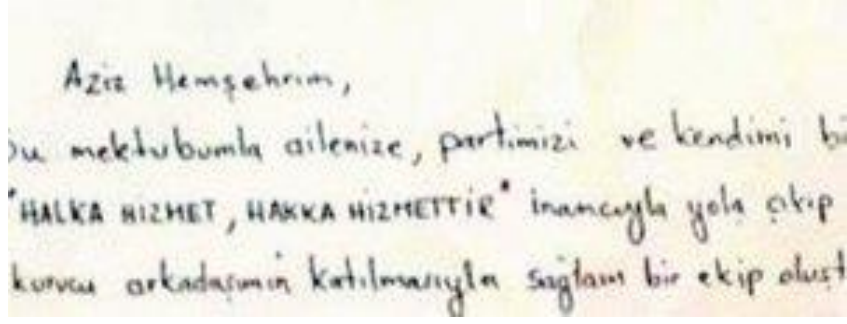 Aziz Hemşehrim,
bu mektubumla ailenize, partimizi ve kendimi bi
"HALKA HİZMET, HAKKA HİZMETTİR" inancıyla yola çıkıp
kurucu arkadaşımın katılmasıyla sağlam bir ekip oluşt